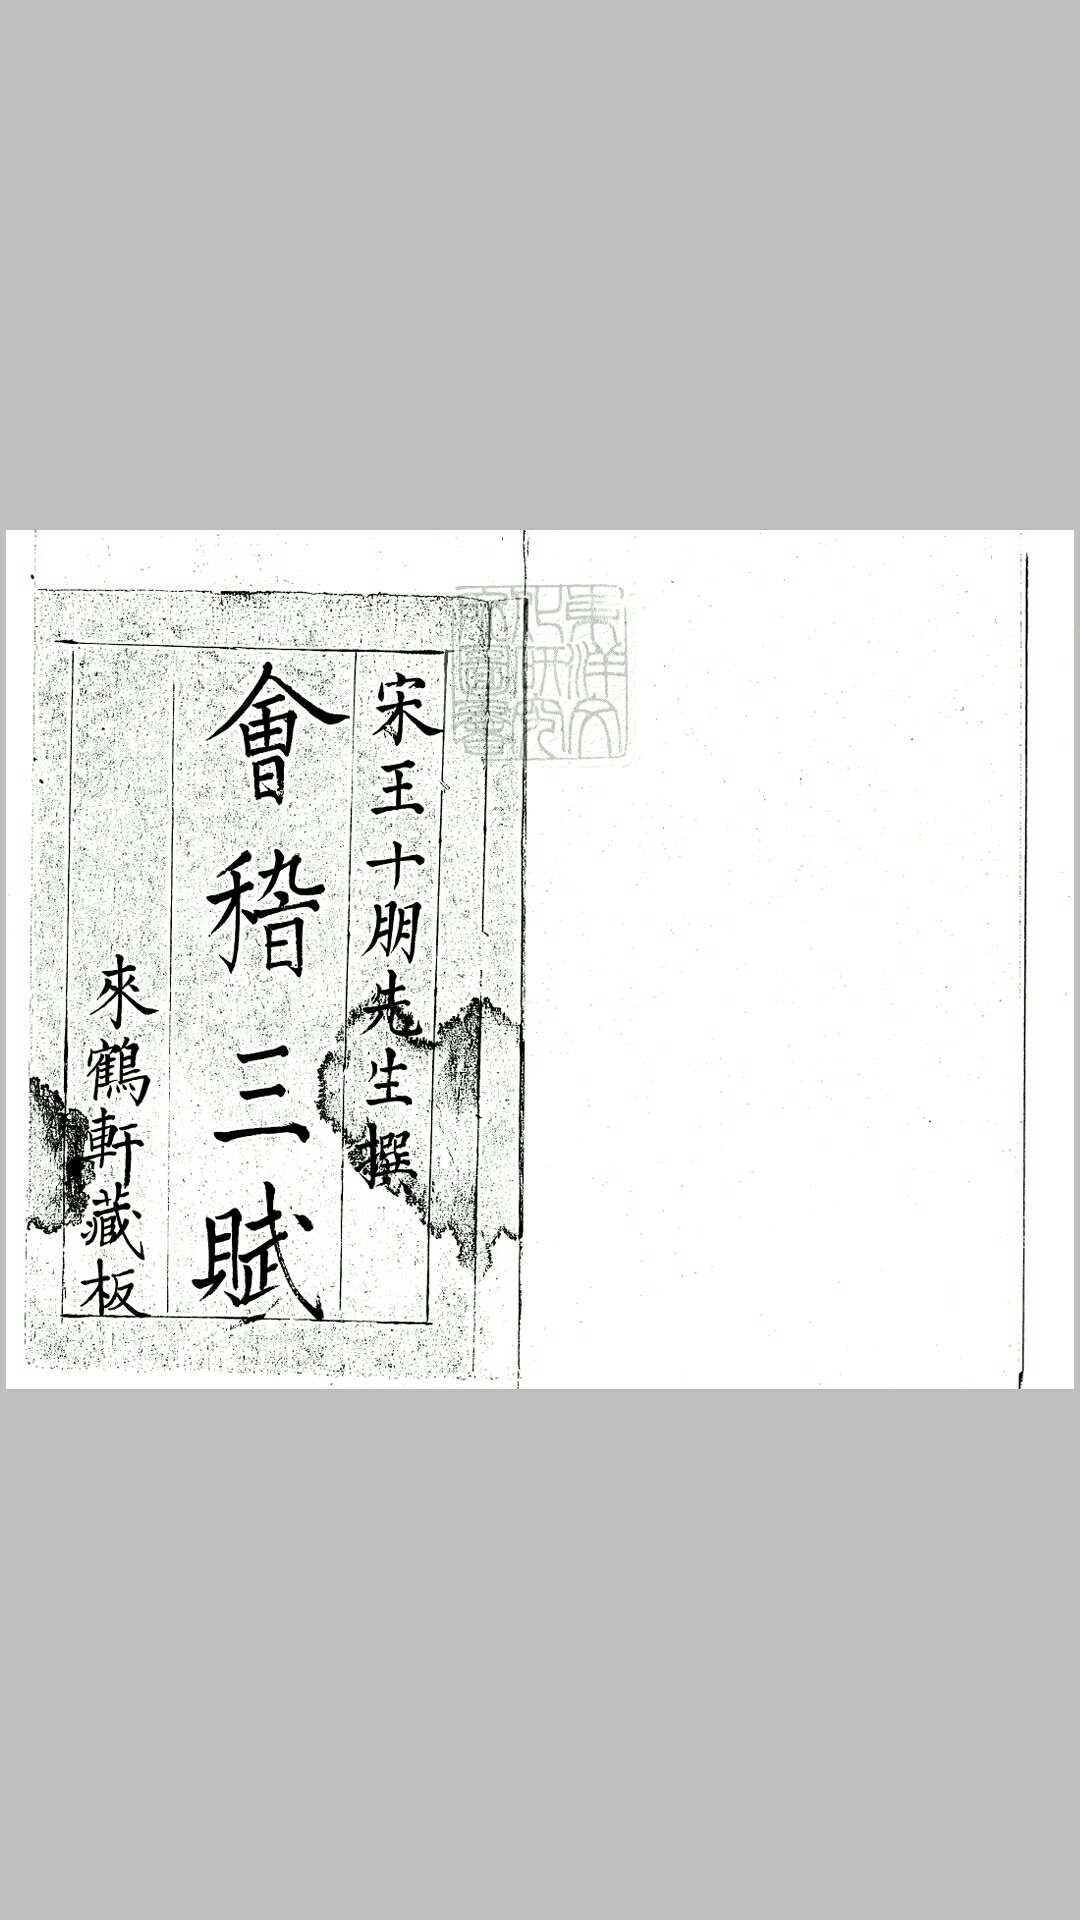 宋王十朋先生撰
會稽三賦
來鶴軒藏板
東洋文
化研究
所圖書